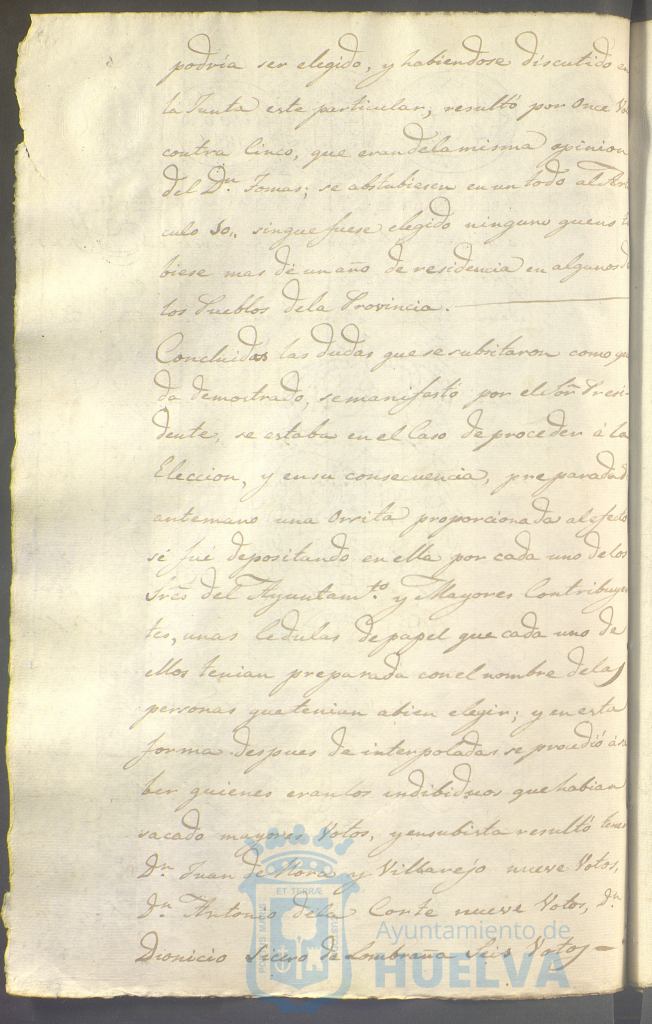 podría ser elegido, y habiendose discutido en
la Junta este particular, resultó por Once Vo
contra Cinco, que eran dela misma opinion
del Dn. Tomas; se abstubiesen en un todo al Arti
culo 50,, sin que fuese elegido ninguno que no
biese mas de un año de residencia en algunos de
los Pueblos dela Provincia.
Concluidas las dudas que se subsitaron como que
da demostrado, se manifestó por el Sor Presi
dente, se estaba en el Caso de proceder á la
Eleccion, y en su consecuencia, preparada d
antemano una Orsita proporcionada al efecto
se fué depositando en ella por cada uno de los
Sres del Ayuntamto. y Mayores Contribuyen
tes, unas Cedulas de papel que cada uno de
ellos tenian preparada con el nombre de las
personas que tenian abien elegir; y en esta
forma despues de interpoladas se procedió á sa
ber quienes eran los indibiduos que habian
sacado mayores Votos, y en su bista resultó tener
Dn. Juan de Mora y Villarejo nueve Votos,
Dn. Antonio dela Corte nueve Votos, Dn.
Dionicio Sicero de Lombraña Seis Votos
ET TERRÆ
Ayuntamiento de
HUELVA